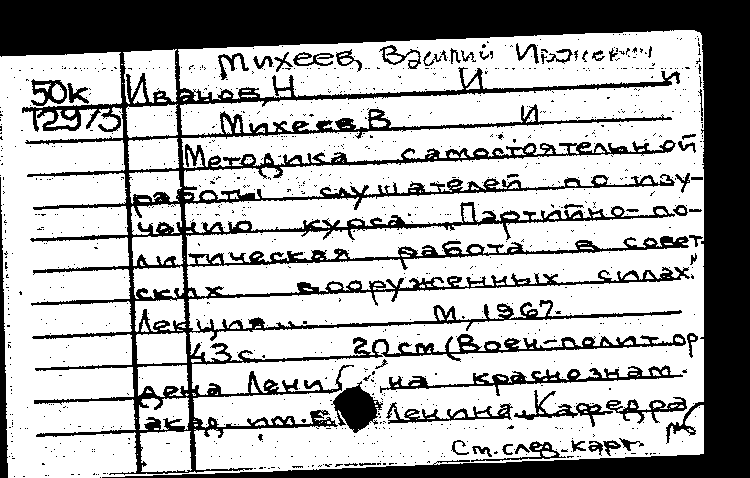 Михеев, Василий Иванович
50к Иванов, Н И и
12973 Михеев, В И
Методика самостоятельной
работы слушателей по изу-
чению курса „Партийно-по-
литическая работа в совет-
ских вооруженных силах"
Лекция... М., 1967.
43с. 20см (Воен-полит. ор-
дена Лени на краснознам.
акад. им. В. Ленина. Кафедра
См. след. карт.